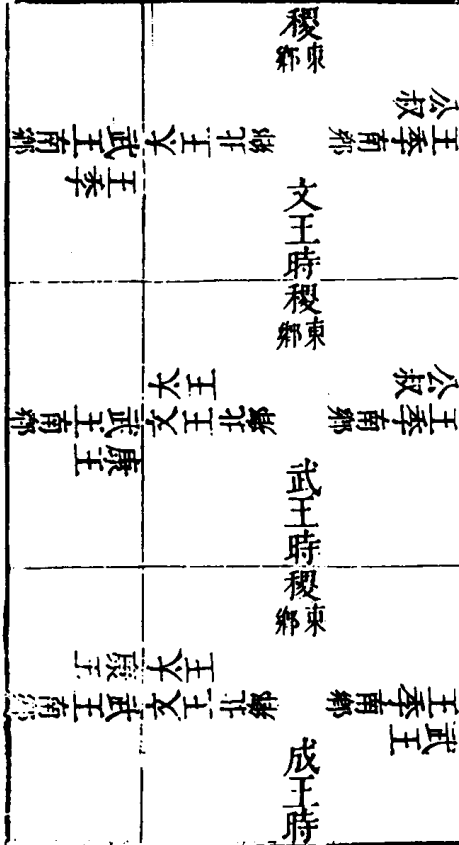 稷東鄉
公叔
王季南鄉
太王北鄉
武王南鄉
王季
文王時
稷東鄉
公叔
王季南鄉
太王
文王北鄉
武王南鄉
康王
武王時
稷東鄉
王季南鄉
武王
太王
文王北鄉
康王
武王南鄉
成王時